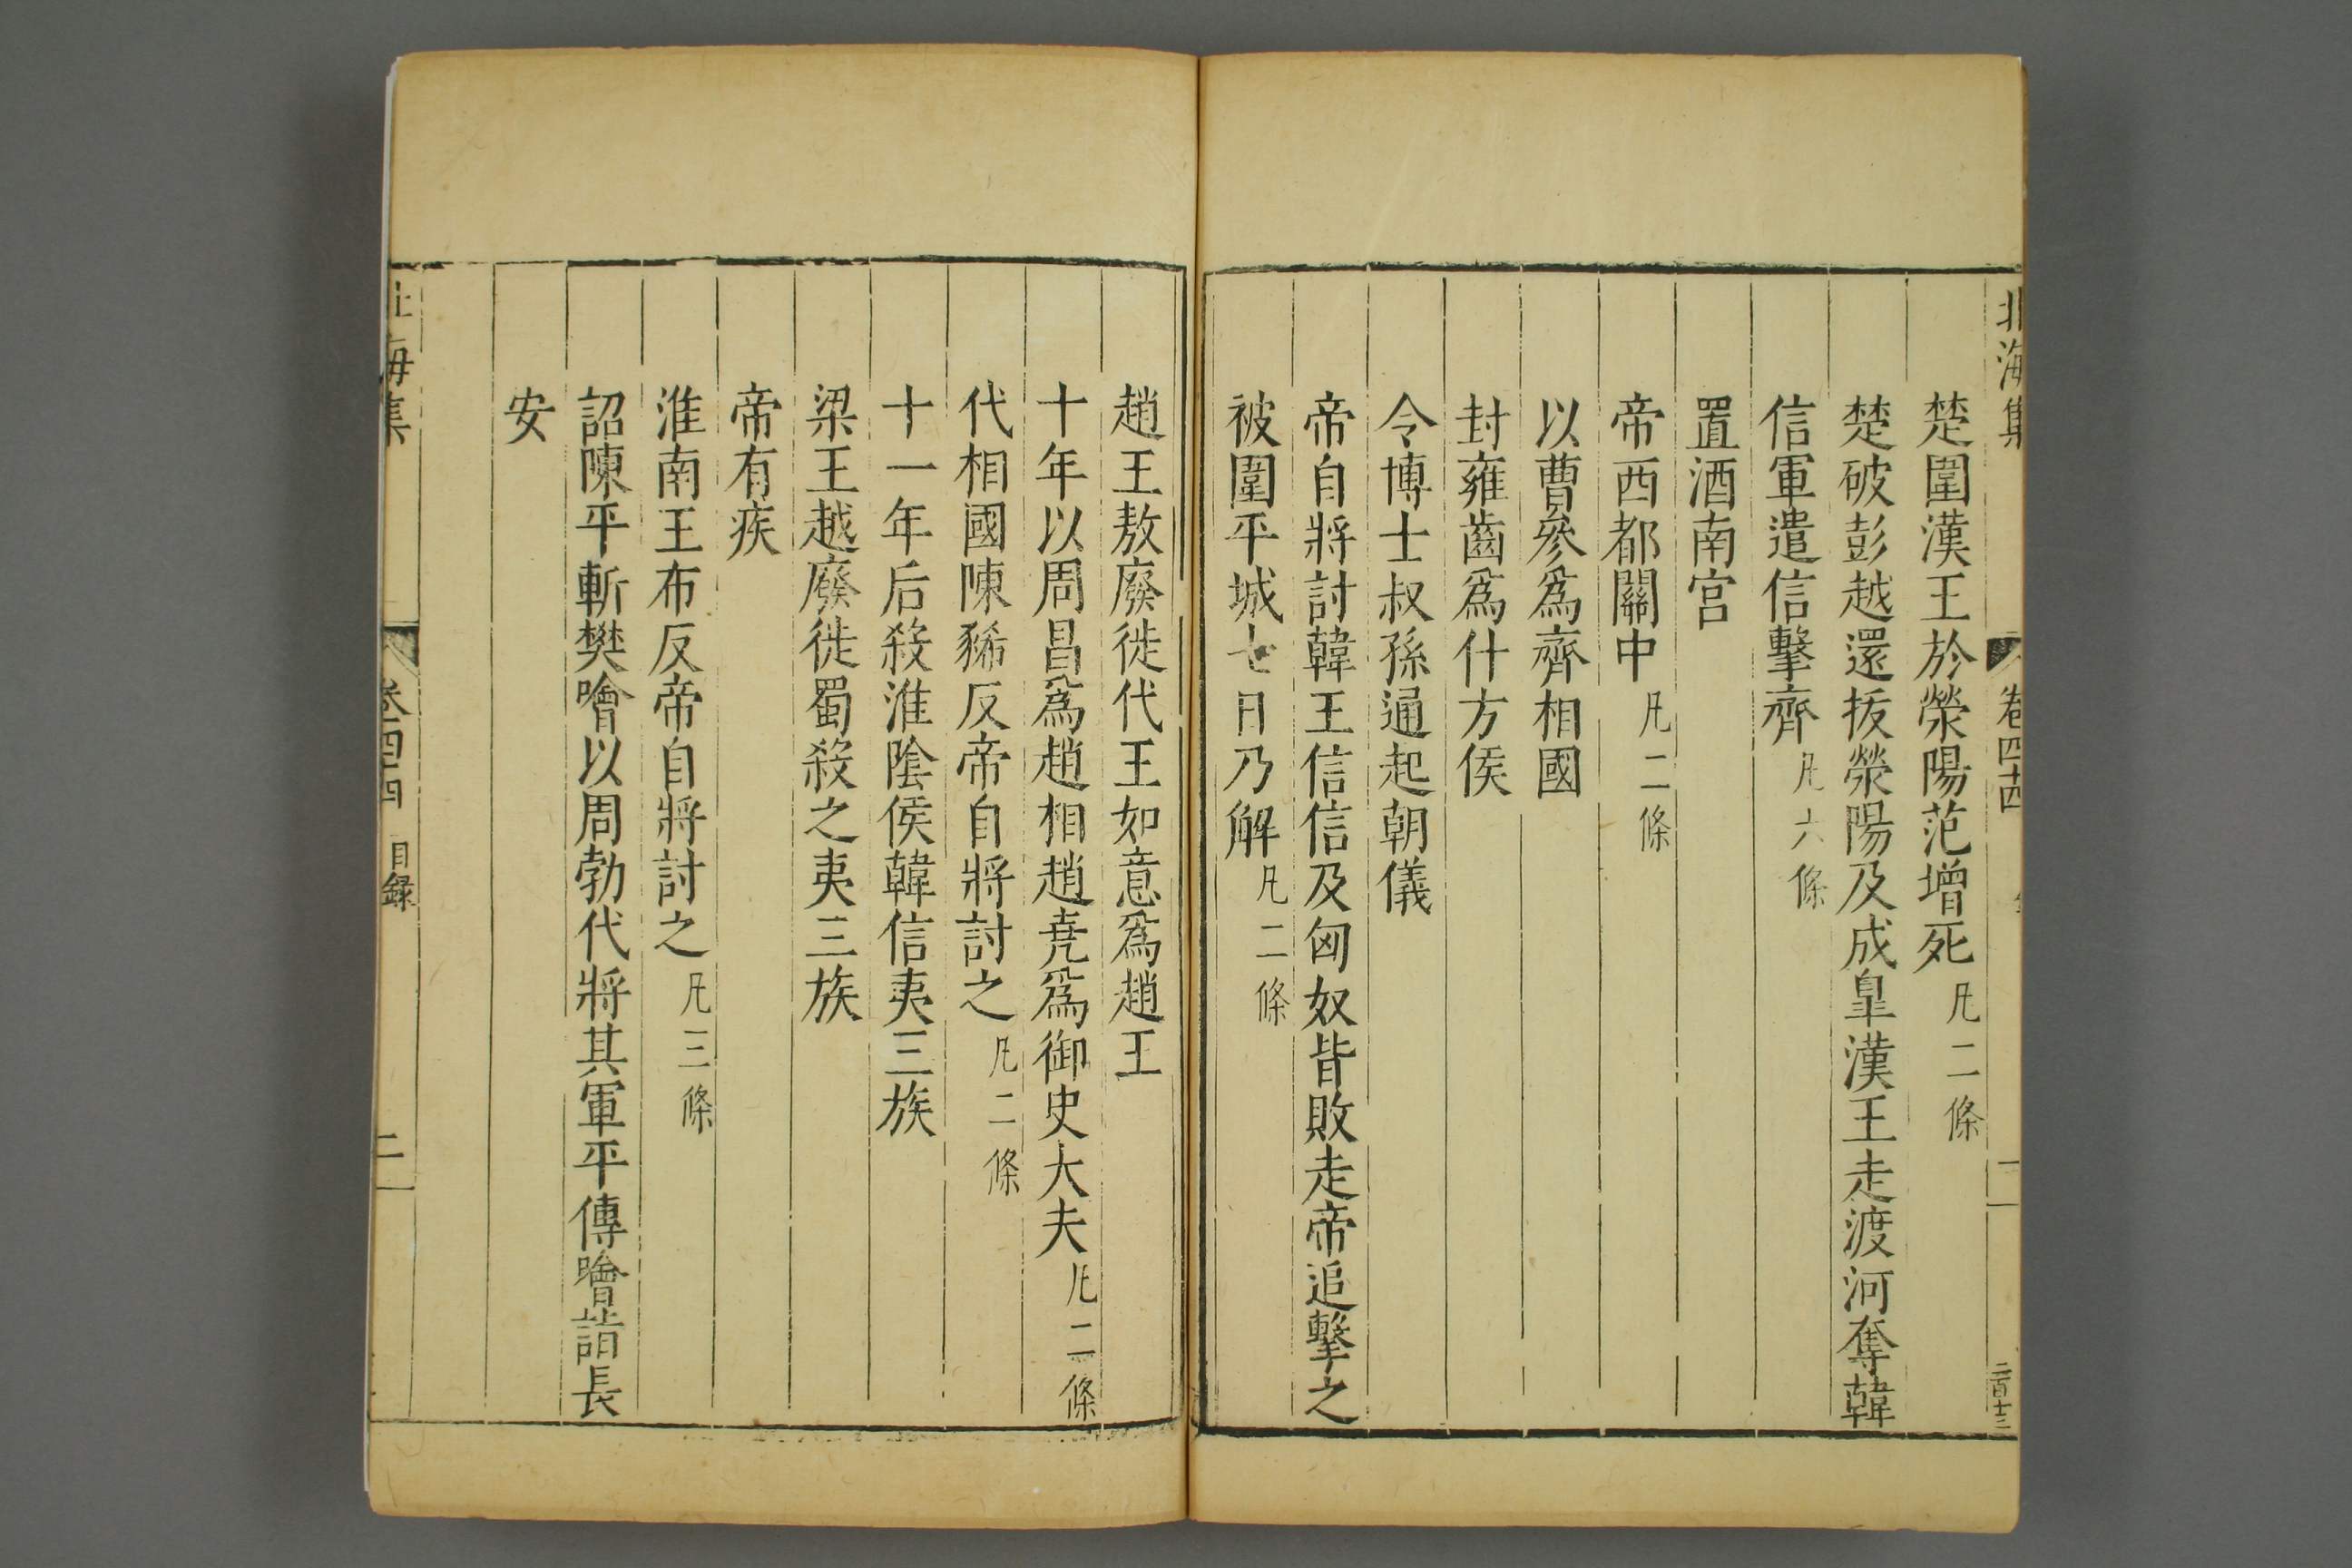 北海集 卷四十四 二百十三
楚圍漢王於滎陽范增死凡二條
楚破彭越還拔滎陽及成皐漢王走渡河奪韓
信軍遣信擊齊凡六條
置酒南宮
帝西都關中凡二條
以曹參爲齊相國
封雍齒爲什方侯
令博士叔孫通起朝儀
帝自將討韓王信信及匈奴皆敗走帝追擊之
被圍平城七日乃解凡二條
趙王敖廢徙代王如意爲趙王
十年以周昌爲趙相趙堯爲御史大夫凡二條
代相國陳豨反帝自將討之凡二條
十一年后殺淮陰侯韓信夷三族
梁王越廢徙蜀殺之夷三族
帝有疾
淮南王布反帝自將討之凡三條
詔陳平斬樊噲以周勃代將其軍平傳噲詣長
安
北海集 卷四十四 目録 二